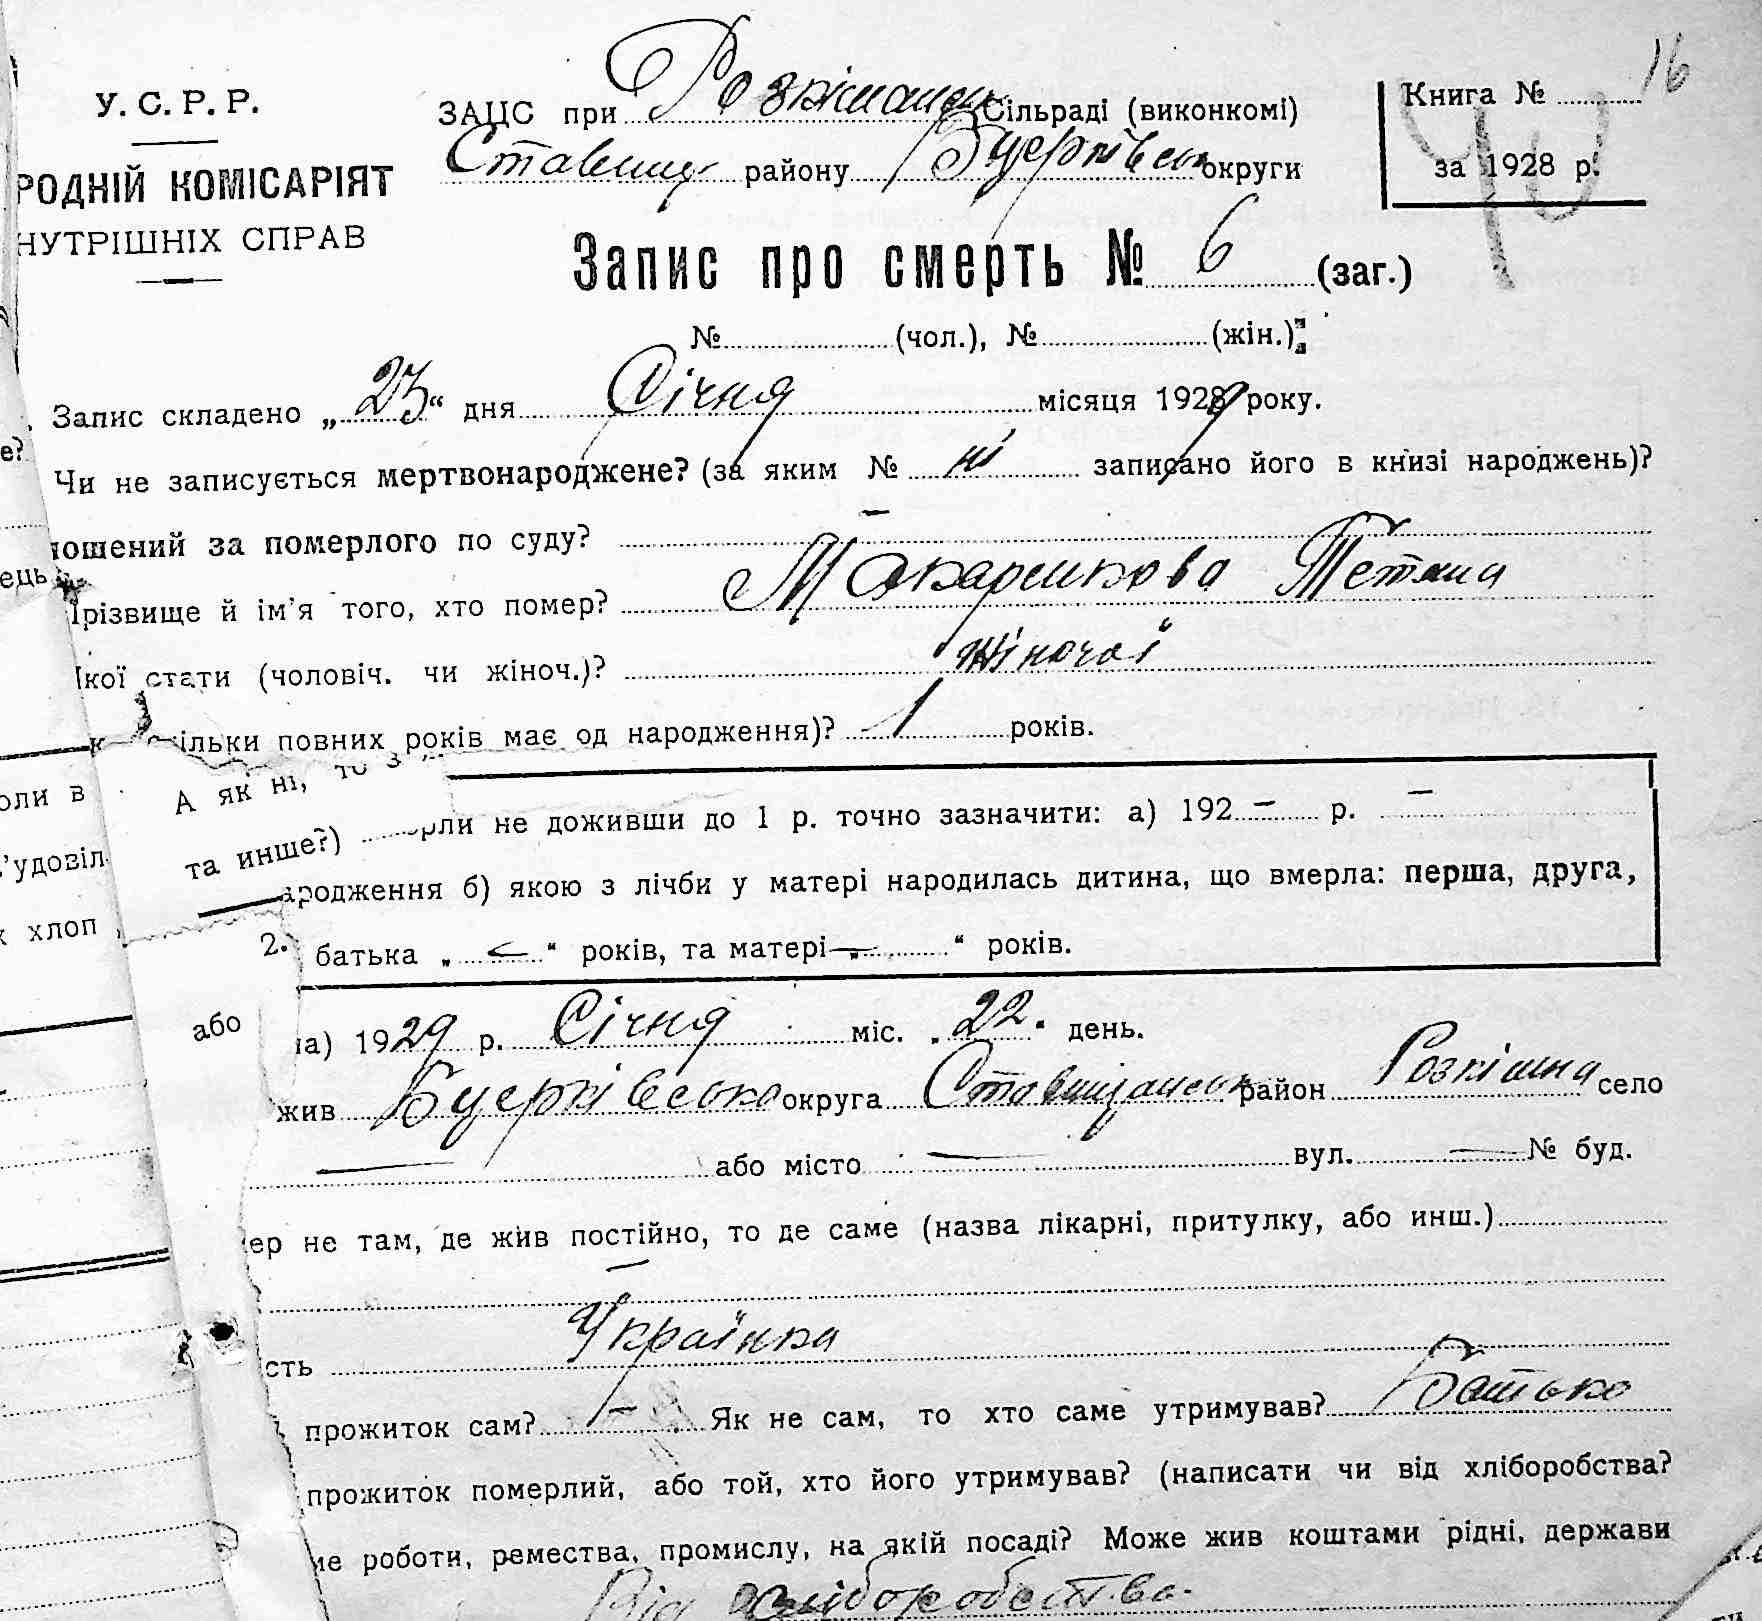 16
У. С. Р. Р.
РОДНІЙ КОМІСАРІЯТ
НУТРІШНІХ СПРАВ
ЗАЦС при Розкішан Сільраді (виконкомі)
Ставищ району Бцерківськ округи
Книга №
за 1928 р.
Запис про смерть № 6 (заг.)
№ (чол.), № (жін.)
Запис складено „23“ дня Січня місяця 1929 року.
е?
Чи не записується мертвонароджене? (за яким № ні записано його в книзі народжень)?
ошений за померлого по суду? —
ець
Прізвище й ім’я того, хто помер? Макаренкова Тетяна
Якої стати (чоловіч. чи жіноч.)? Жіночої
ільки повних років має од народження)? 1 років.
оли в
А як ні, то з
рли не доживши до 1 р. точно зазначити: а) 192 — р. —
’удовіл
та инше?)
ародження б) якою з лічби у матері народилась дитина, що вмерла: перша, друга,
х хлоп
2.
батька „ — “ років, та матері „ — “ років.
або
а) 1929 р. Січня міс. „22“ день.
жив Бцерківсько округа Ставищанськ район Розкішна село
— або місто — вул. — № буд.
ер не там, де жив постійно, то де саме (назва лікарні, притулку, або инш.)
—
сть Українка
прожиток сам? — Як не сам, то хто саме утримував? Батько
прожиток померлий, або той, хто його утримував? (написати чи від хліборобства?
ме роботи, ремества, промислу, на якій посаді? Може жив коштами рідні, держави
Від хліборобства.